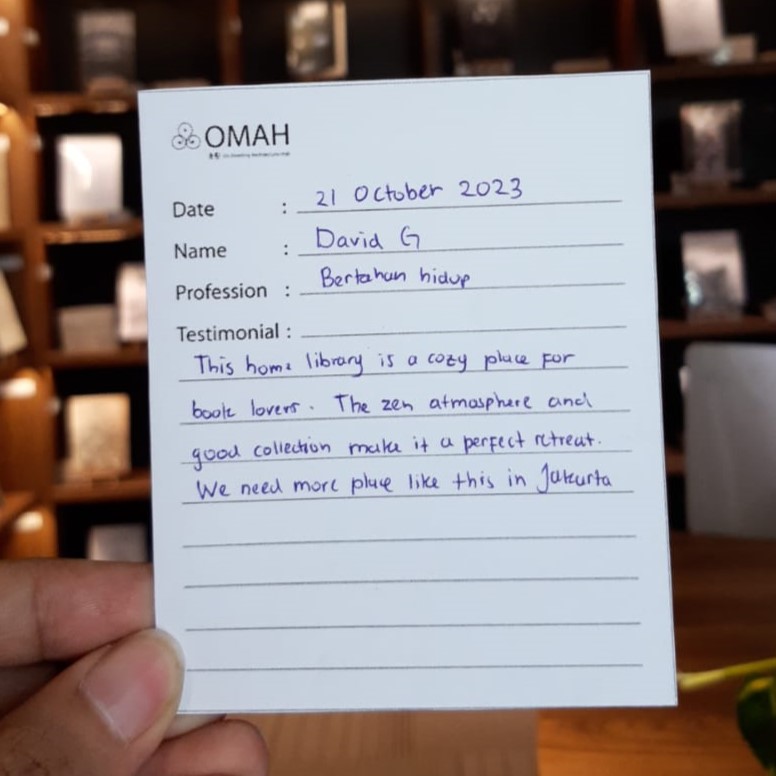 OMAH
Date : 21 October 2023
Name : David G
Profession : Bertahan hidup
Testimonial :
This home library is a cozy place for
book lovers. The zen atmosphere and
good collection make it a perfect retreat.
We need more place like this in Jakarta